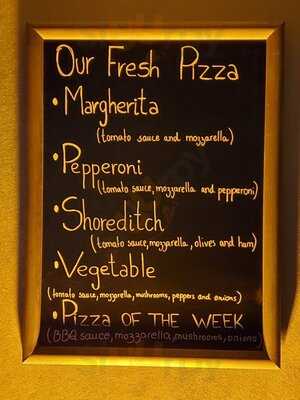 Our Fresh Pizza
• Margherita
(tomato sauce and mozzarella)
• Pepperoni
(tomato sauce, mozzarella and pepperoni)
• Shoreditch
(tomato sauce, mozzarella, olives and ham)
• Vegetable
(tomato sauce, mozzarella, mushrooms, peppers and onions)
• Pizza OF THE WEEK
(BBQ sauce, mozzarella, mushrooms, onions)